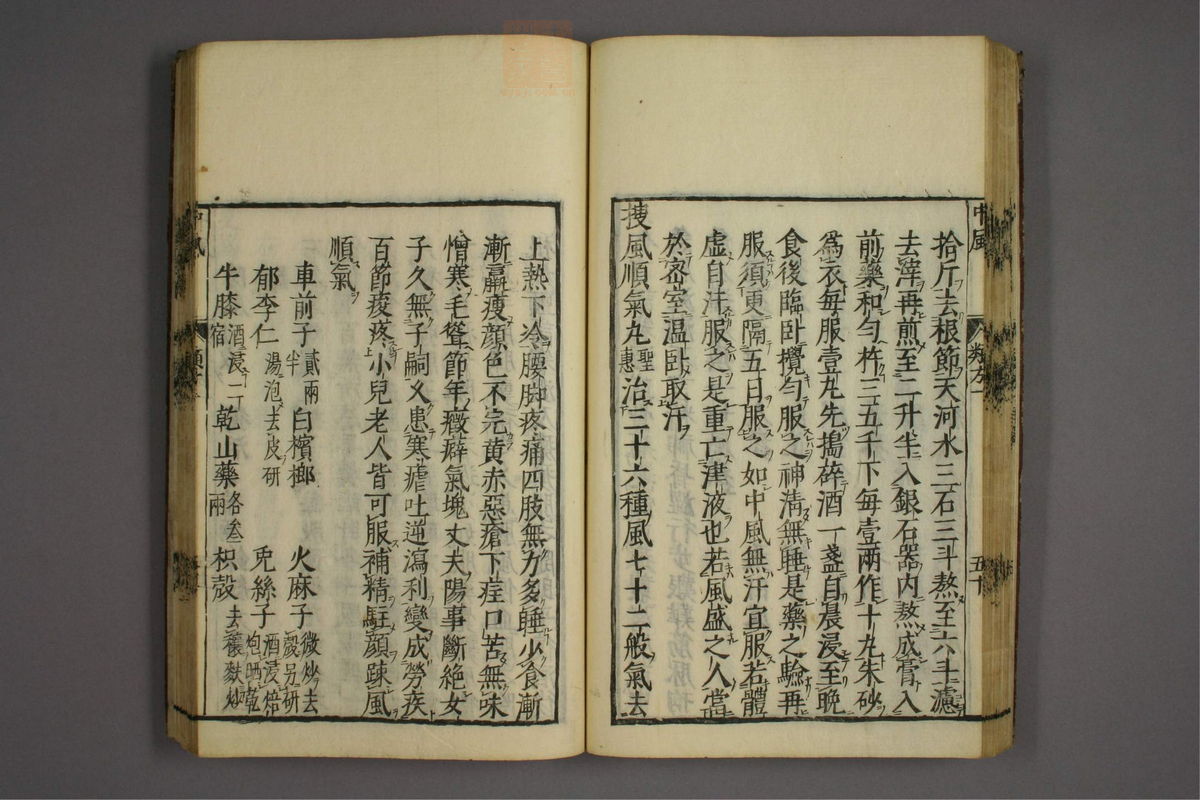 中風
類方一
五十
拾斤去根節天河水三石三斗熬至六斗濾
去滓再煎至二升半入銀石器內熬成膏入
前藥和勻杵三五千下每壹兩作十丸朱砂
為衣每服壹丸先搗碎酒一盞自晨浸至晚
食後臨臥攪勻服之神清無睡是藥之驗再
服須更隔五日服之如中風無汗宜服若體
虛自汗服之是重亡津液也若風盛之人當
於密室溫臥取汗
搜風順氣丸聖惠治三十六種風七十二般氣去
上熱下冷腰脚疼痛四肢無力多睡少食漸
漸羸瘦顏色不完黃赤惡瘡下疰口苦無味
憎寒毛聳節年癥癖氣塊丈夫陽事斷絕女
子久無子嗣又患寒瘧吐逆瀉利變成勞疾
百節痠疼小兒老人皆可服補精駐顏踈風
順氣
車前子貳兩半 白檳榔 火麻子微炒去殼另研
郁李仁湯泡去皮研 兎絲子酒浸焙炮晒乾
牛膝酒浸二宿 乾山藥各叁兩 枳殼去穰麩炒
中風